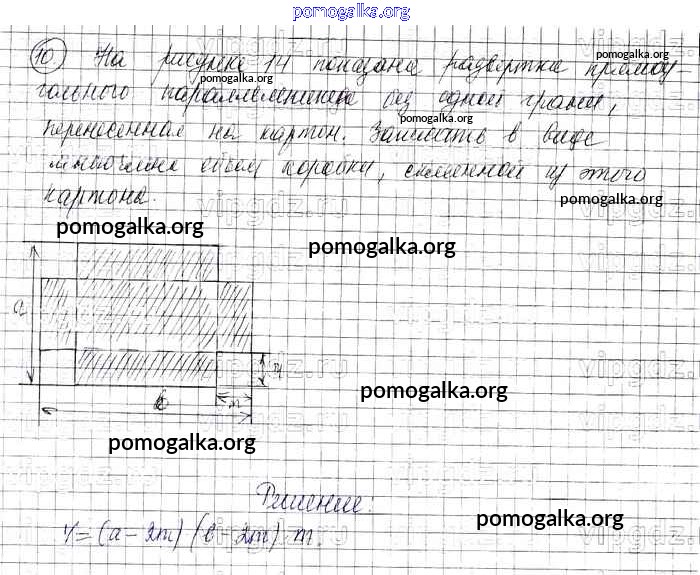 pomogalka.org
10) На рисунке 14 показана развёртка прямоу-
pomogalka.org
pomogalka.org
гольного параллелепипеда без одной грани,
перенесенная на картон. Записать в виде
многочлена объем коробки, склеенной из этого
картона.
pomogalka.org
pomogalka.org
pomogalka.org
a
m
b
pomogalka.org
pomogalka.org
Решение:
V = (a - 2m) (b - 2m) m.
pomogalka.org
vipgdz.ru